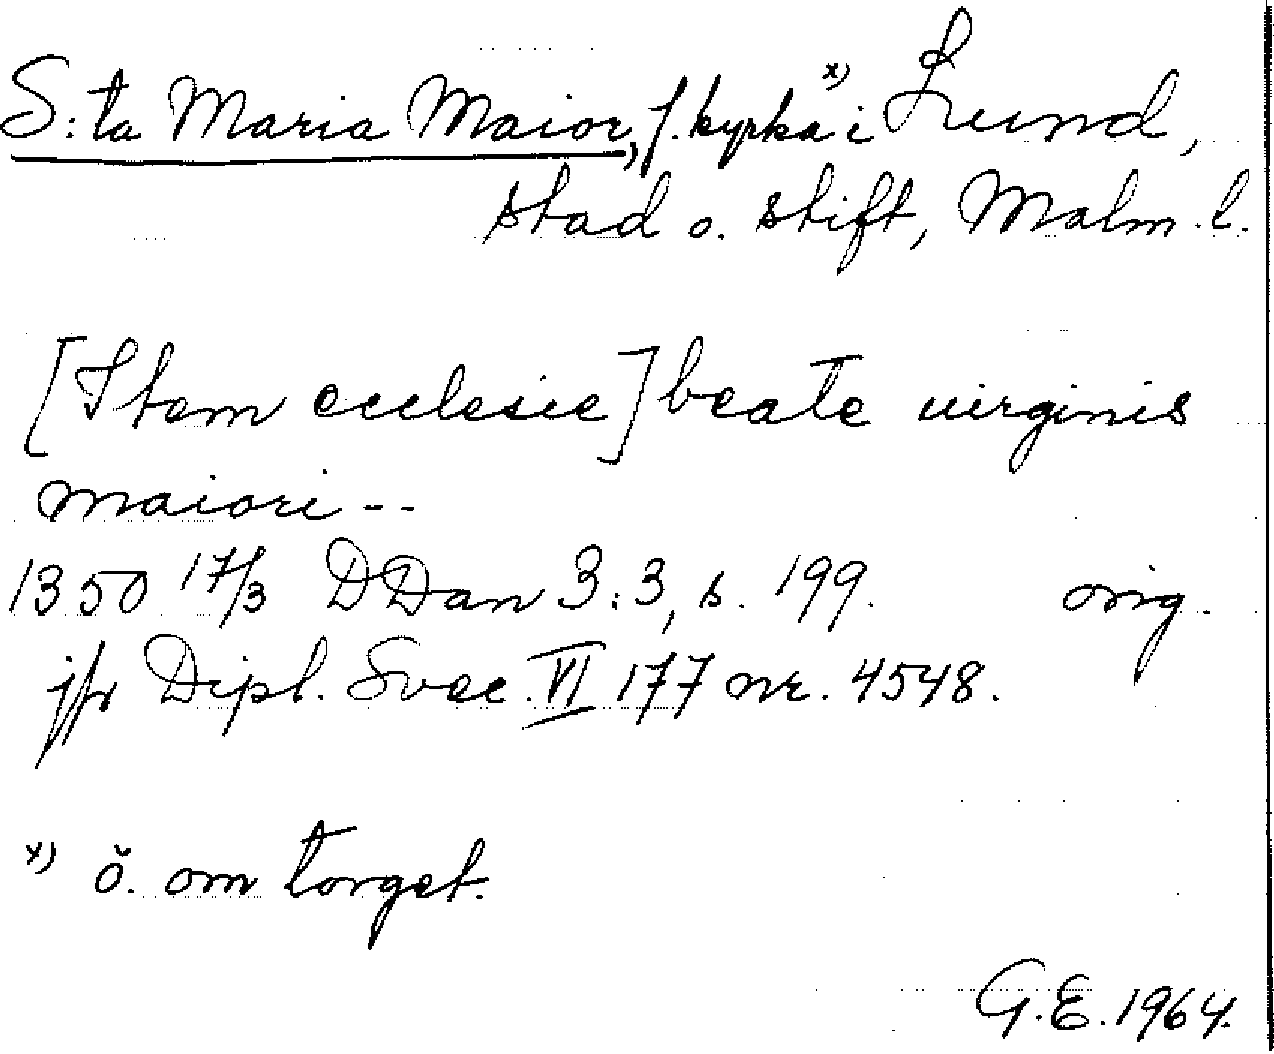 S:ta Maria Maior, f. kyrka x) i Lund,
stad o. stift, Malm. l.
[Item ecclesie] beate uirginis
maiori --
1350 17/3 DDan 3:3, s. 199. orig.
jfr Dipl. Svec. VI 177 nr. 4548.
x) ö. om torget.
G.E. 1964.